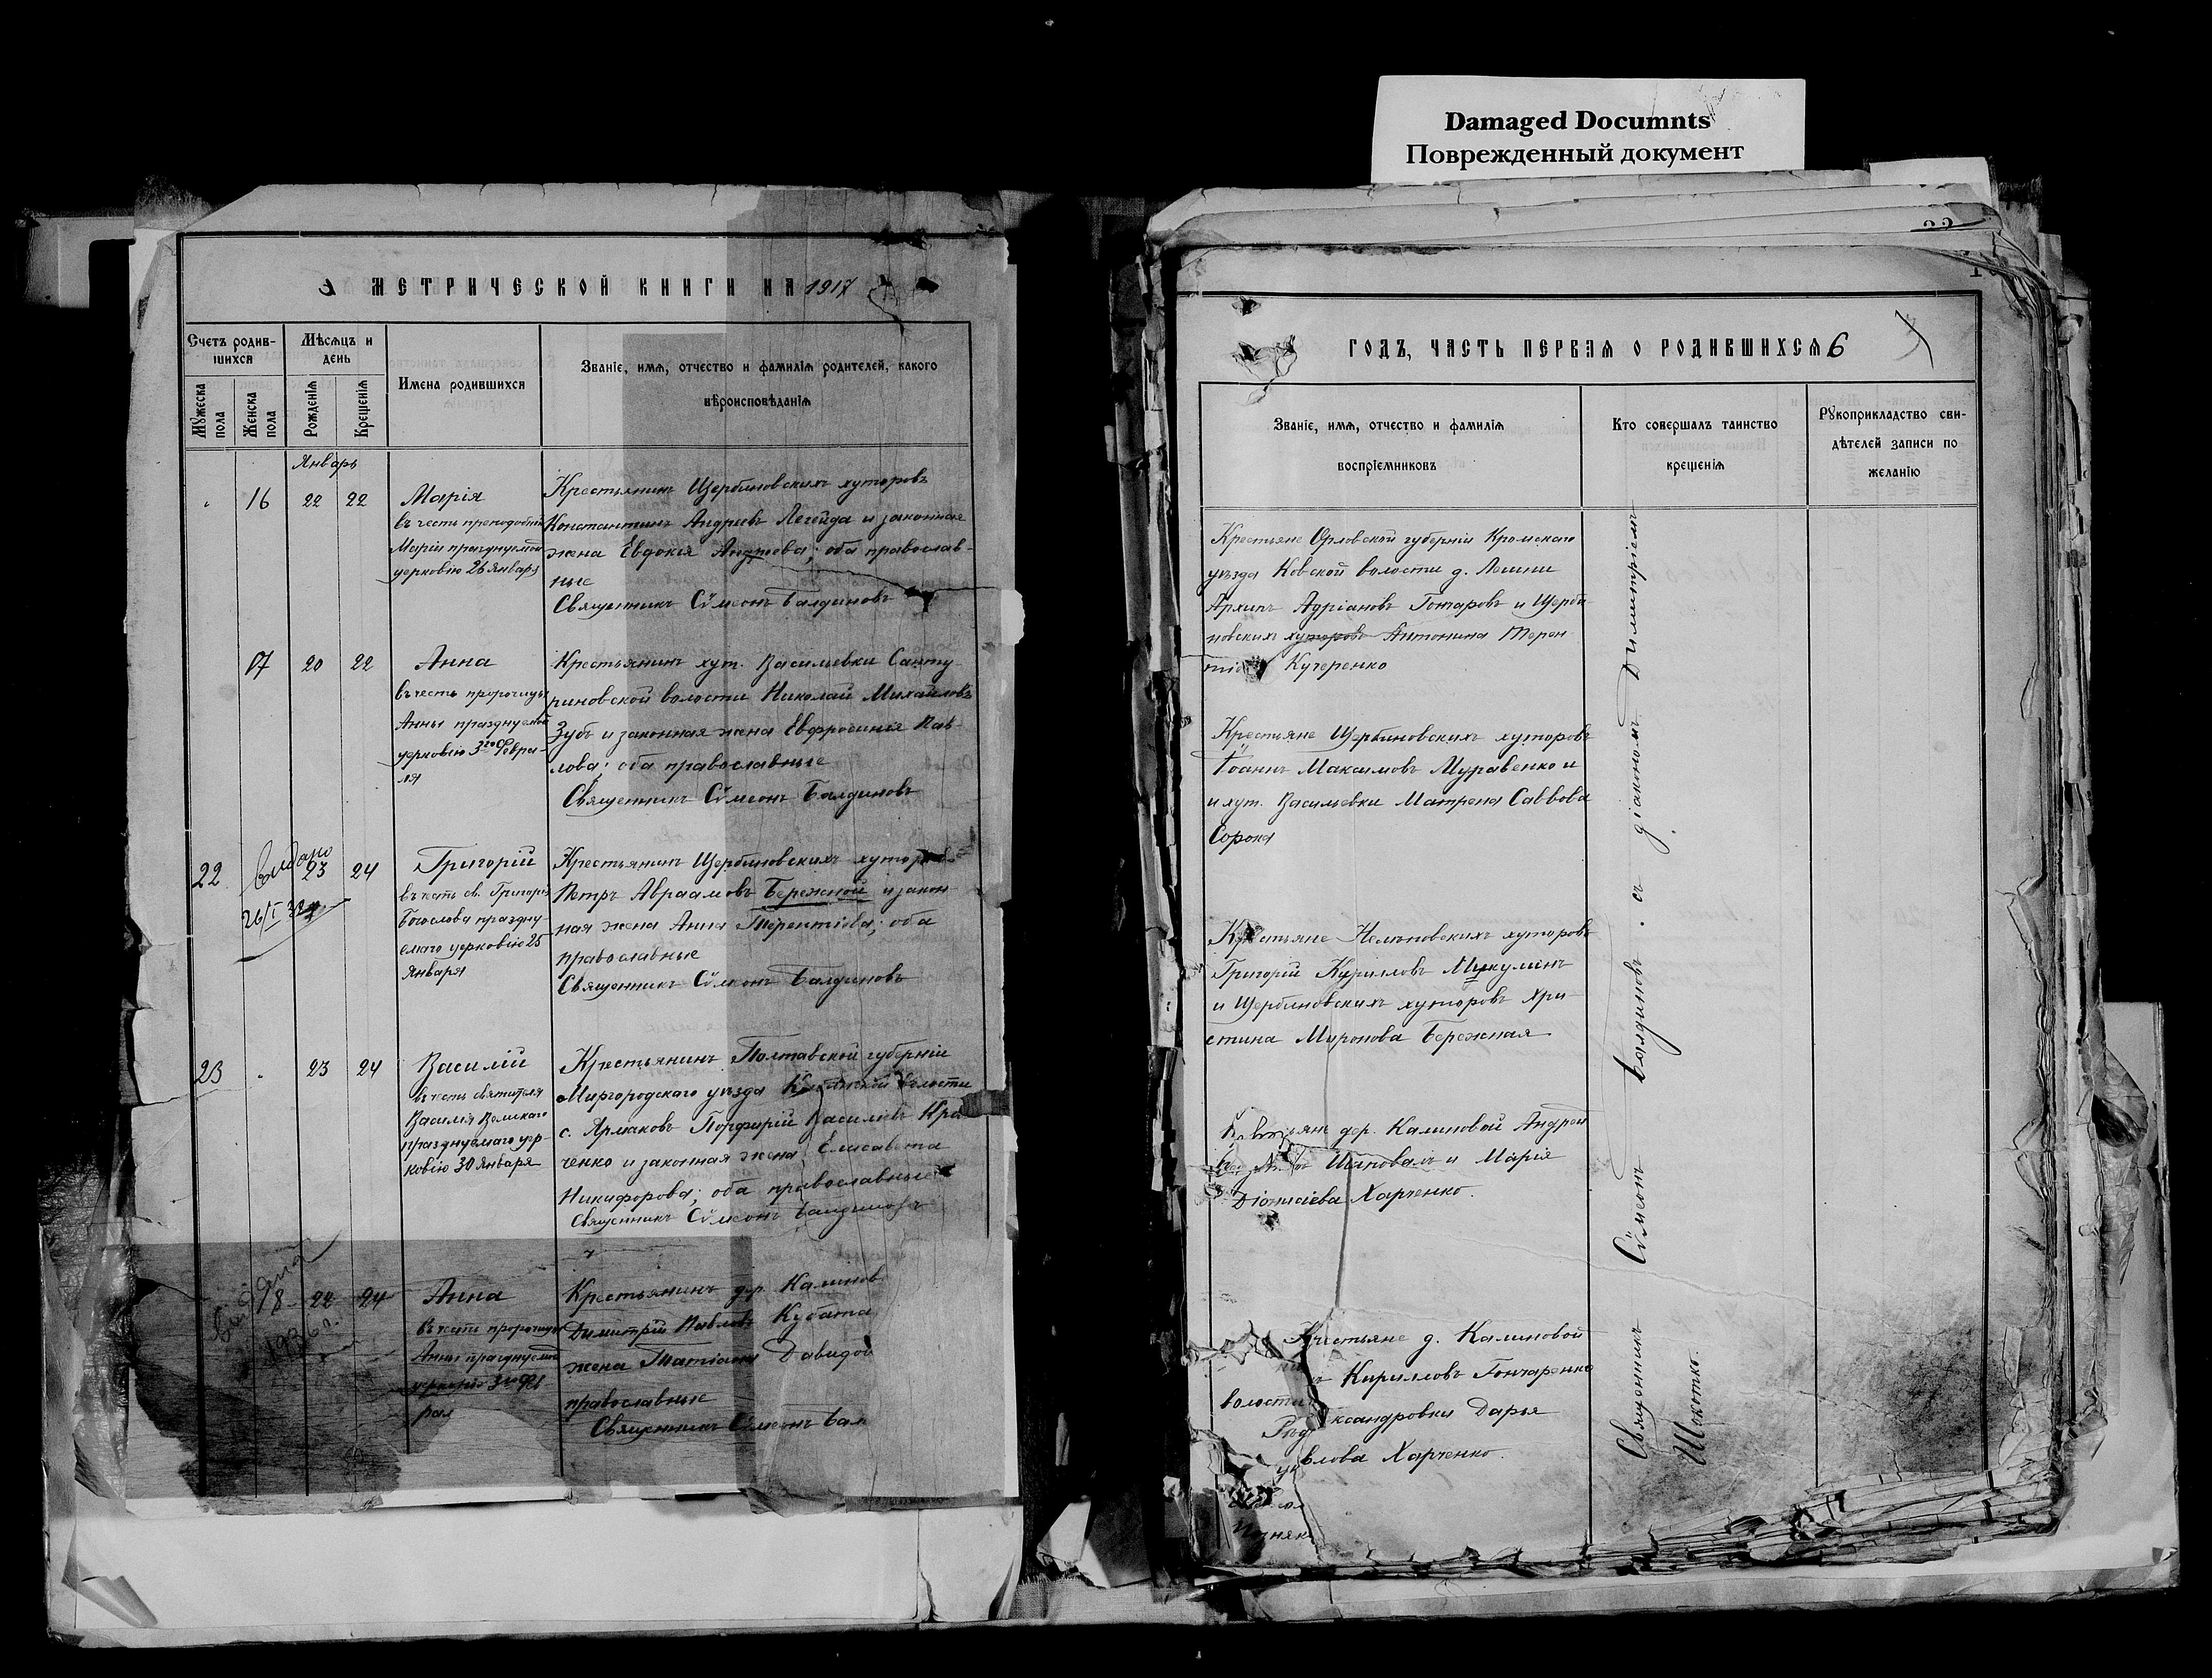 Damaged Documnts
Поврежденный документ
МЕТРИЧЕСКОЙ КНИГИ НА 1917
Счетъ родив-
шихся
Мѣсяцъ и
день
Имена родившихся
Званіе, имя, отчество и фамилія родителей, какого
вѣроисповѣданія
Мужеска
пола
Женска
пола
Рожденія
Крещенія
Январь
16 22 22
Марія
въ честь преподобной
Маріи празднуемой
церковію 26 Января
Крестьянинъ Щербиновскихъ хуторовъ
Константинъ Андреевъ Легейда и законная
жена Евдокія Андреева; оба православ-
ные
Священникъ Сѷмеонъ Балдиновъ
17 20 22
Анна
въ честь пророчицы
Анны празднуемой
церковію 3го Февра-
ля
Крестьянинъ хут. Васильевки Санту-
риновской волости Николай Михайловъ
Зубъ и законная жена Евфросинія Пав-
лова; оба православные
Священникъ Сѷмеонъ Балдиновъ
22 23 24
Выдано
26/I
Григорій
въ честь св. Григорія
Богослова праздну-
емаго церковію 25
Января
Крестьянинъ Щербиновскихъ хуторовъ
Петръ Авраамовъ Бережной и закон-
ная жена Анна Терентіева; оба
православные
Священникъ Сѷмеонъ Балдиновъ
23 23 24
Василій
въ честь святителя
Василія Великаго
празднуемаго цер-
ковію 30 Января
Крестьянинъ Полтавской губерніи
Миргородскаго уѣзда волости
с. Ярмаковъ Порфирій Василіевъ Кра
ченко и законная жена Елисавета
Никифорова; оба православные
Священникъ Сѷмеонъ Балдиновъ
18 22 24
выдана
1936 г.
Анна
въ честь пророчицы
Анны празднуемой
церковію 3го Фев
раля
Крестьянинъ дер. Калинов
Димитрій Павловъ Кубата
жена Татіана Давидов
православные
Священникъ Сѷмеонъ Бал
ГОДЪ, ЧАСТЬ ПЕРВАЯ О РОДИВШИХСЯ 6
Званіе, имя, отчество и фамилія
воспріемниковъ
Кто совершалъ таинство
крещенія
Рукоприкладство сви-
дѣтелей записи по
желанію
Крестьяне Орловской губерніи Кромскаго
уѣзда Ковской волости д. Лешни
Архипъ Адріановъ Гончаровъ и Щерби-
новскихъ хуторовъ Антонина Терен
тіе Кучеренко
Крестьяне Щербиновскихъ хуторовъ
Іоаннъ Максимовъ Муравенко и
и хут. Васильевки Матрена Саввова
Сорока
Крестьяне Нелѣповскихъ хуторовъ
Григорій Курилловъ Микулинъ
и Щербиновскихъ хуторовъ Хри-
стина Миронова Бережная
дер. Калиновой Андрей
Шаповалъ и Марія
Діонисіева Харченко.
Крестьяне д. Калиновой
ъ Кирилловъ Гончаренко
волости
ксандровки Дарья
влова Харченко.
Священникъ Сѷмеонъ Балдиновъ съ діакономъ Димитріемъ
Шокотко.